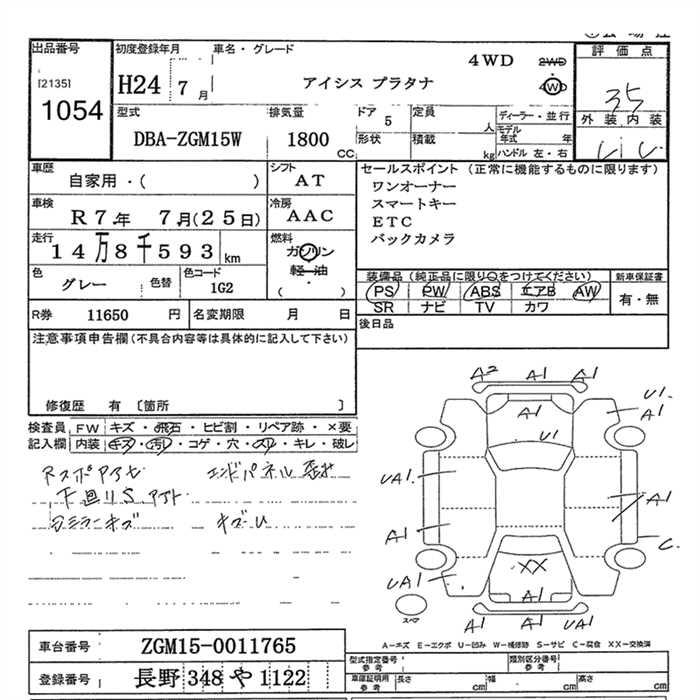 出品番号
[2135]
1054
初度登録年月
H24 7 月
車名・グレード
アイシス プラタナ
4WD
2WD
4WD
評価点
35
外装 内装
型式
DBA-ZGM15W
排気量
1800
CC
ドア
5
形状
定員
人
積載
kg
ディーラー・並行
モデル年式 年
ハンドル 左・右
車歴
自家用・( )
シフト
AT
車検
R7年 7月(25日)
冷房
AAC
走行
14万8千593 km
燃料
ガソリン
軽油
・
( )
色
グレー
色替
色コード
1G2
R券 11650 円
名変期限 月 日
セールスポイント (正常に機能するものに限ります)
ワンオーナー
スマートキー
ETC
バックカメラ
装備品 (純正品に限り○をつけてください)
PS PW ABS エアB AW
SR ナビ TV カワ
新車保証書
有・無
後日品
注意事項申告欄(不具合内容等は具体的に記入して下さい)
修復歴 有 〔箇所 〕
検査員記入欄
FW キズ・飛石・ヒビ割・リペア跡・×要
内装 キズ・汚れ・コゲ・穴・スリ・キレ・破レ
エンドパネル
下廻りS
ミラーキズ
キズU
A2 A1 A1
A1
U1
A1
U1
UA1
A1
A1
C
UA1
XX
A1
A1
UA1
スペア
A-キズ E-エクボ U-凹み W-補修跡 S-サビ C-腐食 XX-交換済
車台番号
ZGM15-0011765
登録番号
長野 348 や 1122
型式指定番号
参考
類別区分番号
参考
車庫証明用
参考
長さ cm
幅 cm
高さ cm